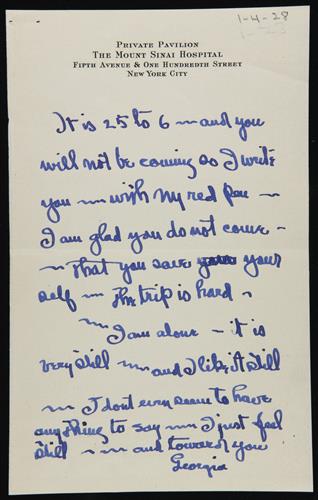 1-4-28
PRIVATE PAVILION
THE MOUNT SINAI HOSPITAL
FIFTH AVENUE & ONE HUNDREDTH STREET
NEW YORK CITY
It is 25 to 6 — and you
will not be coming so I write
you — with my red pen —
I am glad you do not come —
— that you save your your
self — the trip is hard —
— I am alone — it is
very still — and I like it still
— I dont even seem to have
anything to say — I just feel
still — — and toward you
Georgia